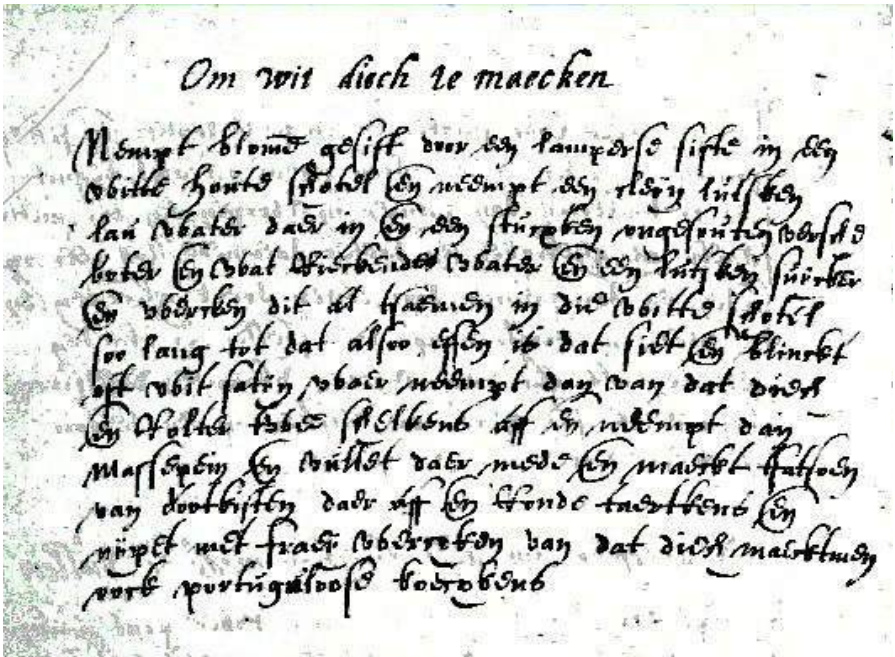 Om wit diech te maecken
Nempt blome gesift door een lamperse sifte in een
witte houte schotel en neempt een cleijn lutsken
lau water daer in en een stucxken ongesouten versche
boter en wat Rieckendet water en een lutsken suicker
en wercken dit al tsaemen in die witte schotel
soo lang tot dat alsoo effen is dat siet en blinckt
oft wit satijn waer neempt dan van dat diech
en Rolter twee schelkens aff en neempt dan
Massepein en vullet daer mede en maeckt fatsoen
van dootkisten daer aff en Ronde taertkens en
nijpet met fraeij wercxken van dat diech maecktmen
oock portugaloose koecxkens